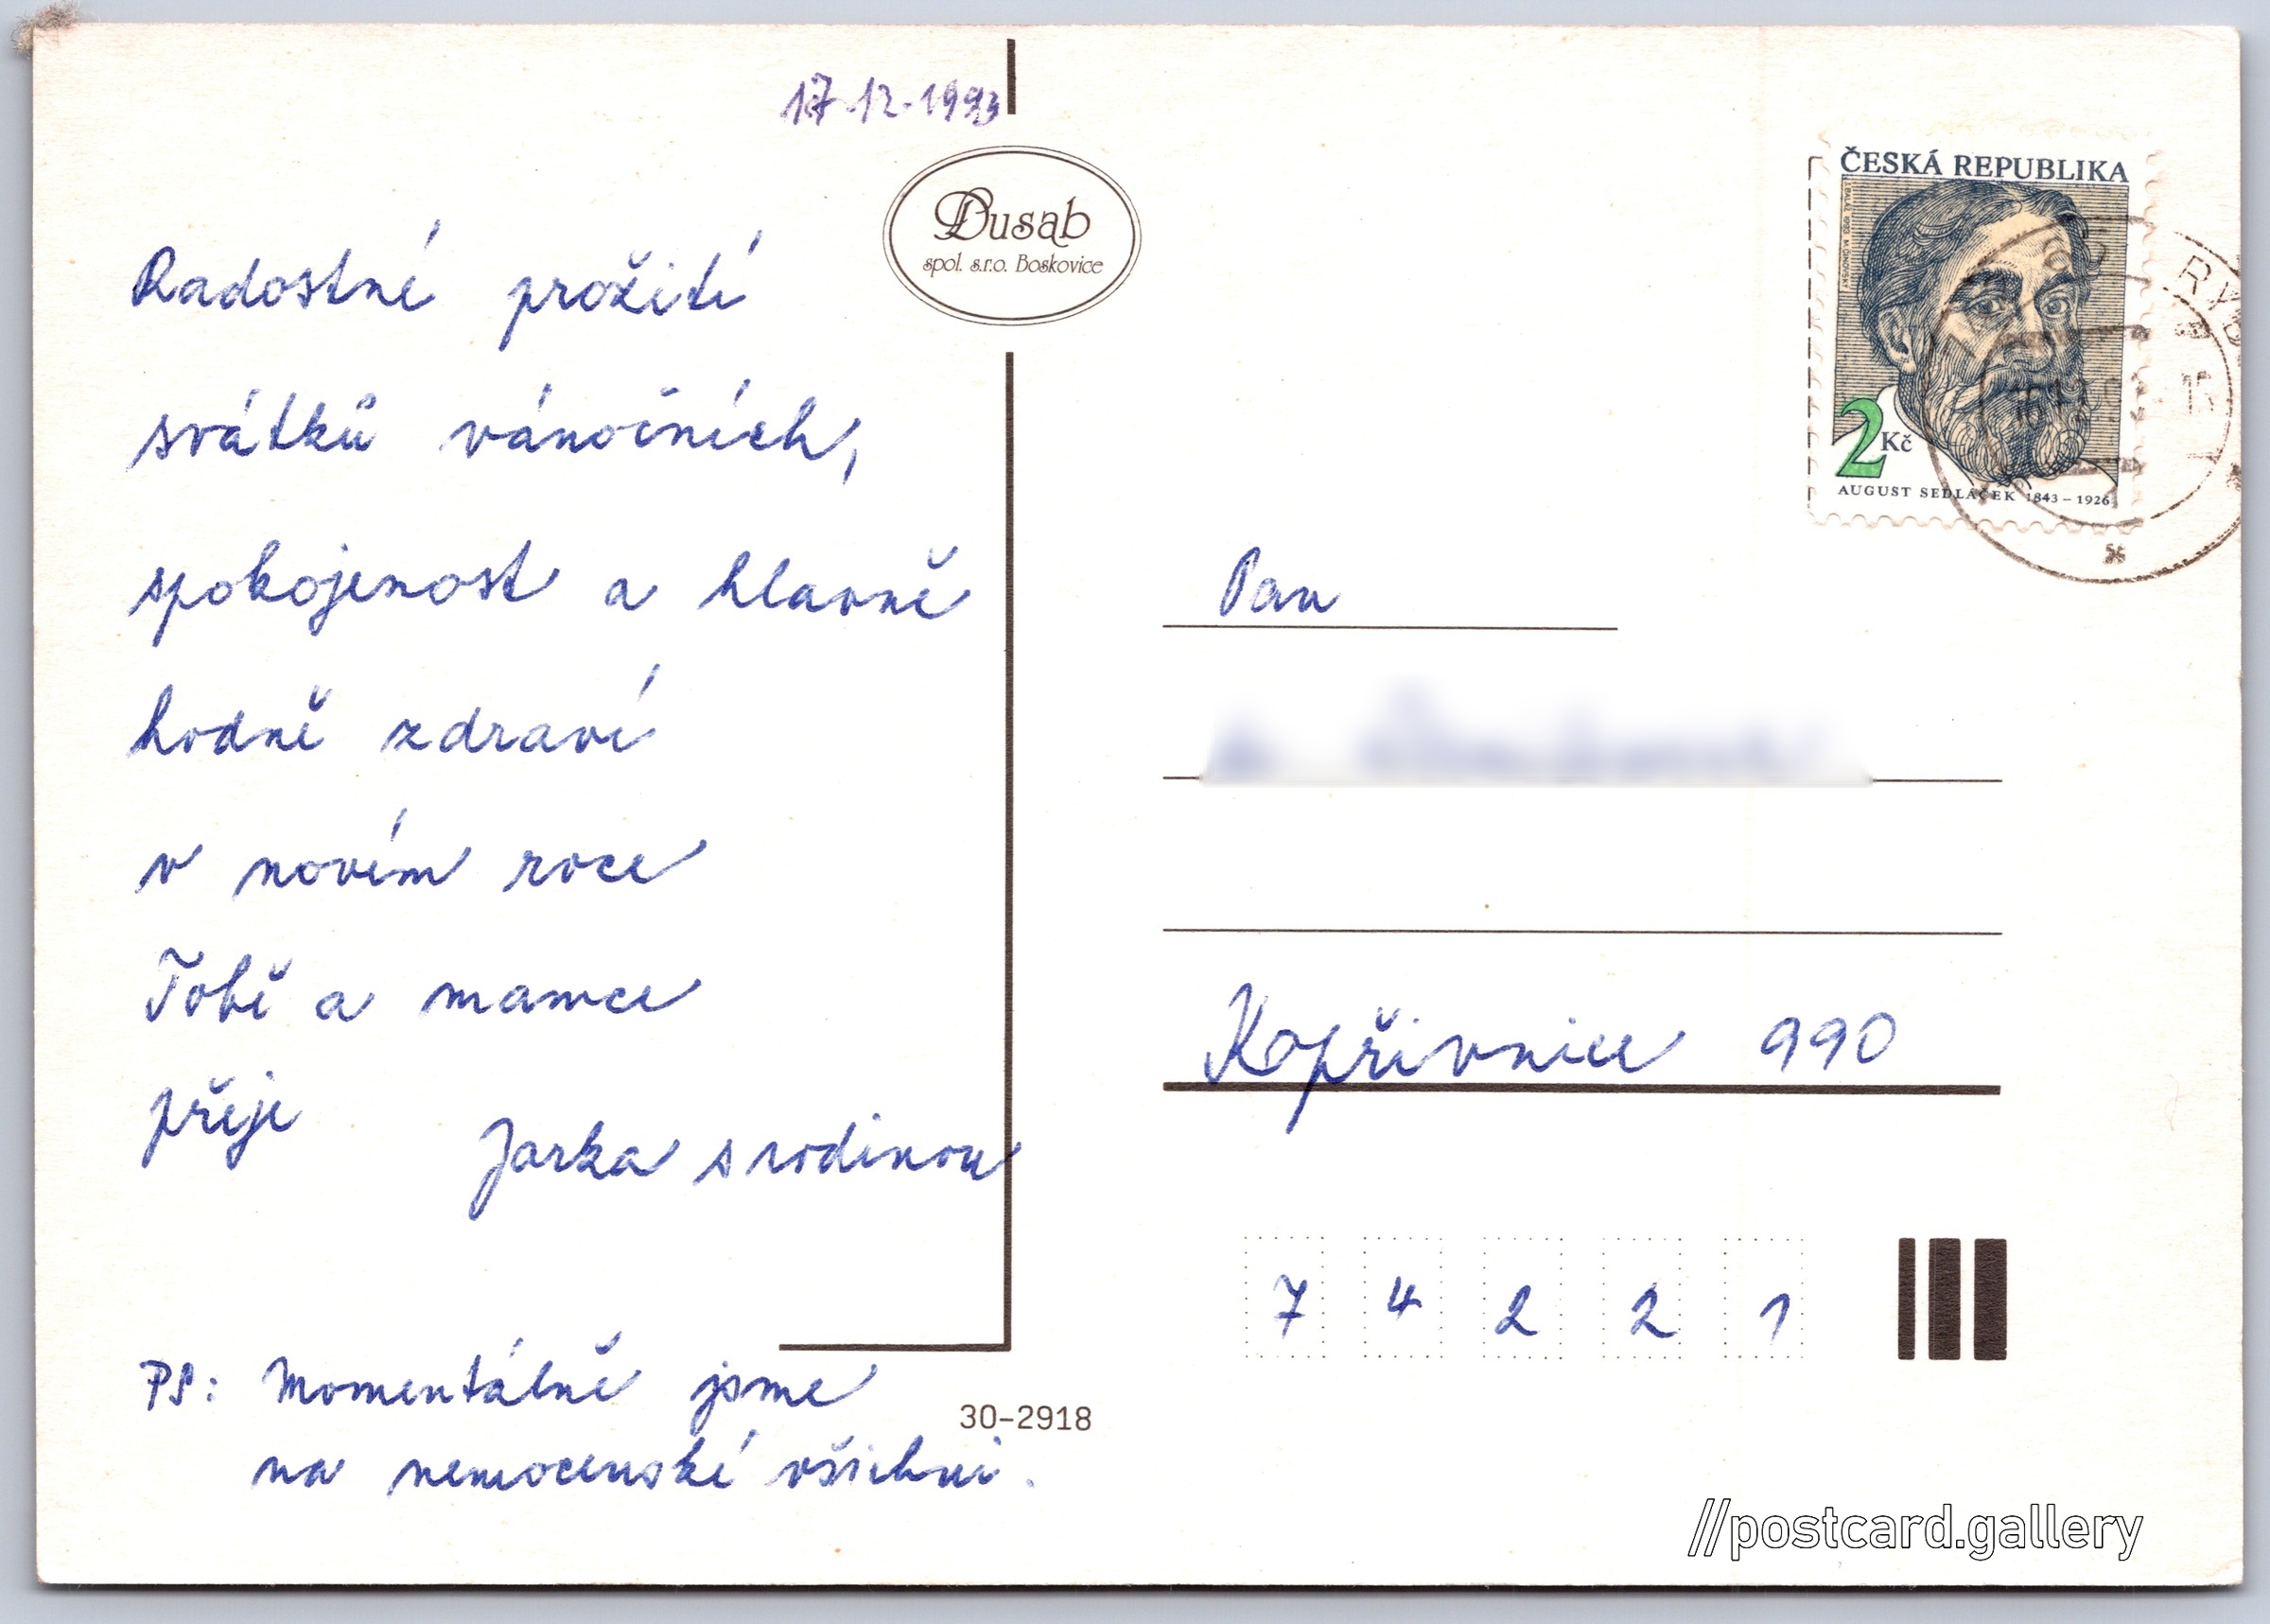 17.12.1993
Dusab
spol. s.r.o. Boskovice
Radostné prožití
svátků vánočních,
spokojenost a hlavně
hodně zdraví
v novém roce
Tobě a mamce
přeje
Jarka s rodinou
PS: Momentálně jsme
na nemocenské všichni.
30-2918
ČESKÁ REPUBLIKA
2 Kč
AUGUST SEDLÁČEK 1843 – 1926
Pan
Kopřivnice 990
7 4 2 2 1
//postcard.gallery